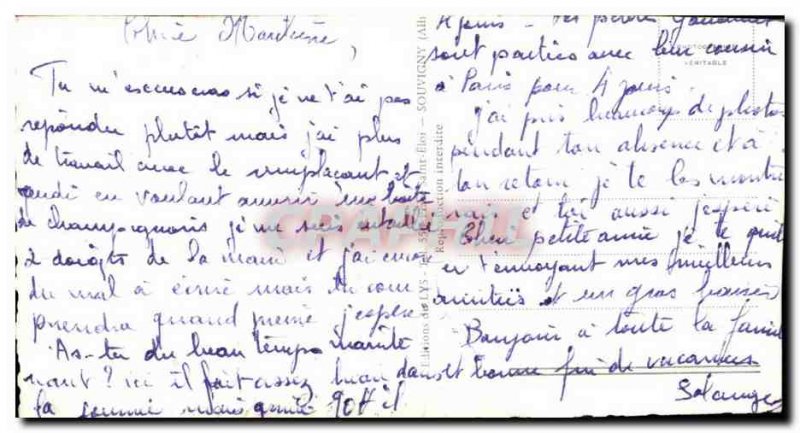 Chère Martine,
Tu m'excuseras si je ne t'ai pas
repondu plutôt mais j'ai plus
de travail avec le remplaçant et
jeudi en voulant ouvrir une boite
de champignons je me suis entaillé
2 doigts de la main et j'ai encore
du mal à écrire mais tu com
prendra quand même j'espère
As-tu du beau temps mainte
nant? ici il fait assez beau dans
la journée mais
4 jours - les
sont parties avec leur cousin
à Paris pour 4 jours.
J'ai pris beaucoup de photos
pendant ton absence et à
ton retour je te les montre
rais et toi aussi j'espère
Chère petite amie je te quitte
en t'envoyant mes meilleurs
amitiés et un gros baiser
Bonjour à toute la famille
et bonne fin de vacances
Solange
Editions du LYS - SOUVIGNY (All
Reproduction interdite
PHOTOGRAPHIE
VÉRITABLE
CPAPHIL